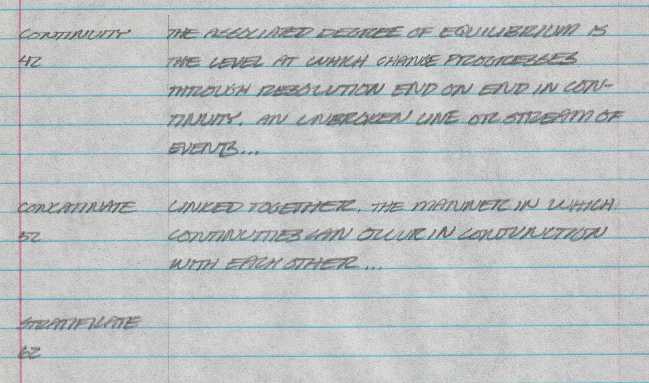 CONTINUITY THE ASSOCIATED DEGREE OF EQUILIBRIUM IS
42 THE LEVEL AT WHICH CHANGE PROGRESSES
THROUGH RESOLUTION END ON END IN CON-
TINUITY. AN UNBROKEN LINE OR STREAM OF
EVENTS...
CONCATINATE LINKED TOGETHER. THE MANNER IN WHICH
52 CONTINUITIES CAN OCCUR IN CONJUNCTION
WITH EACH OTHER...
STRATIFICATE
62